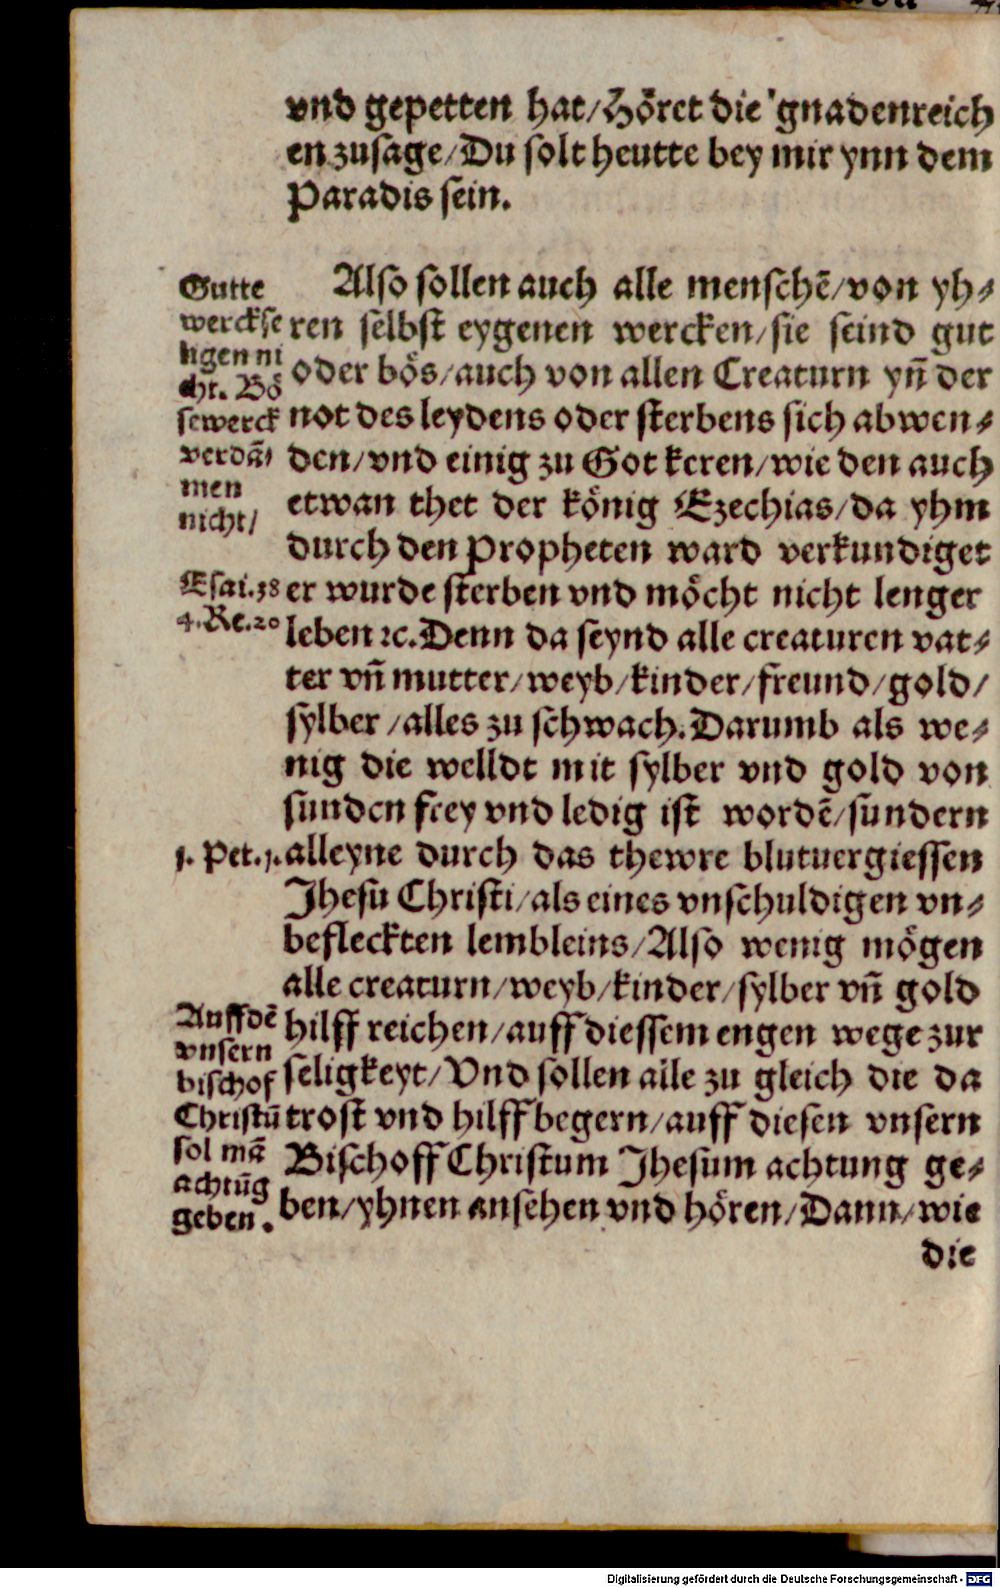 vnd gepetten hat/Höret die gnadenreich
en zusage/Du solt heutte bey mir ynn dem
Paradis sein.
Gutte
werck se
ligen ni
cht. Bö
se werck
verdã⸗
men
nicht/
Also sollen auch alle menschẽ/von yh⸗
ren selbst eygenen wercken/sie seind gut
oder bös/auch von allen Creaturn yn̄ der
not des leydens oder sterbens sich abwen⸗
den/vnd einig zu Got keren/wie den auch
etwan thet der könig Ezechias/da yhm
durch den Propheten ward verkundiget
Esai.38
4.Re.20
er wurde sterben vnd möcht nicht lenger
leben ꝛc. Denn da seynd alle creaturen vat⸗
ter vn̄ mutter/weyb/kinder/freund/gold/
sylber/alles zu schwach. Darumb als we⸗
nig die welldt mit sylber vnd gold von
sunden frey vnd ledig ist wordẽ/sundern
1. Pet.1.
alleyne durch das thewre blutuergiessen
Jhesu Christi/als eines vnschuldigen vn⸗
befleckten lembleins/Also wenig mögen
alle creaturn/weyb/kinder/sylber vn̄ gold
Auff dẽ
vnsern
bischof
Christũ
sol mã
achtũg
geben.
hilff reichen/auff diessem engen wege zur
seligkeyt/Vnd sollen alle zu gleich die da
trost vnd hilff begern/auff diesen vnsern
Bischoff Christum Jhesum achtung ge⸗
ben/yhnen ansehen vnd hören/Dann/wie
die
Digitalisierung gefördert durch die Deutsche Forschungsgemeinschaft - DFG